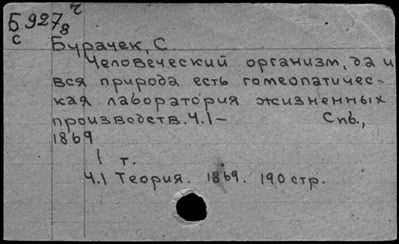 Б 927/8 ч
С
Бурачек, С.
Человеческий организм, да и
вся природа есть гомеопатичес-
кая лаборатория жизненных
производств. Ч.1- Спб.,
1869
1 т.
Ч.1 Теория. 1869. 190 стр.